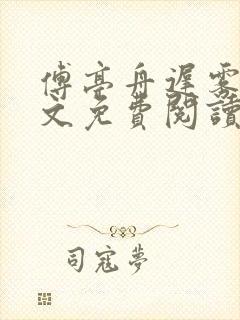 傅亭舟遲雾
文免費閱讀
司寇夢